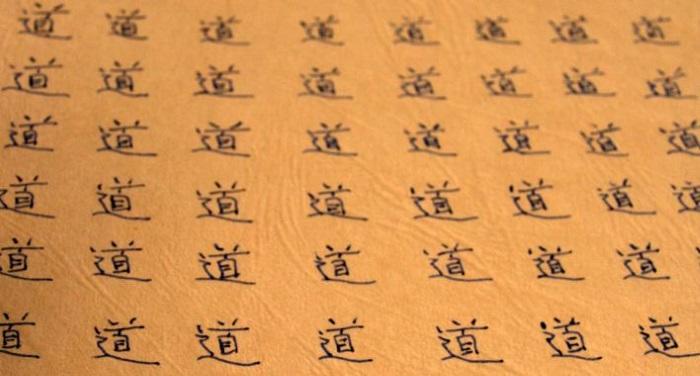 道道道道道道道道
道道道道道道道道
道道道道道道道道
道道道道道道道道
道道道道道道道
道道道道道道道